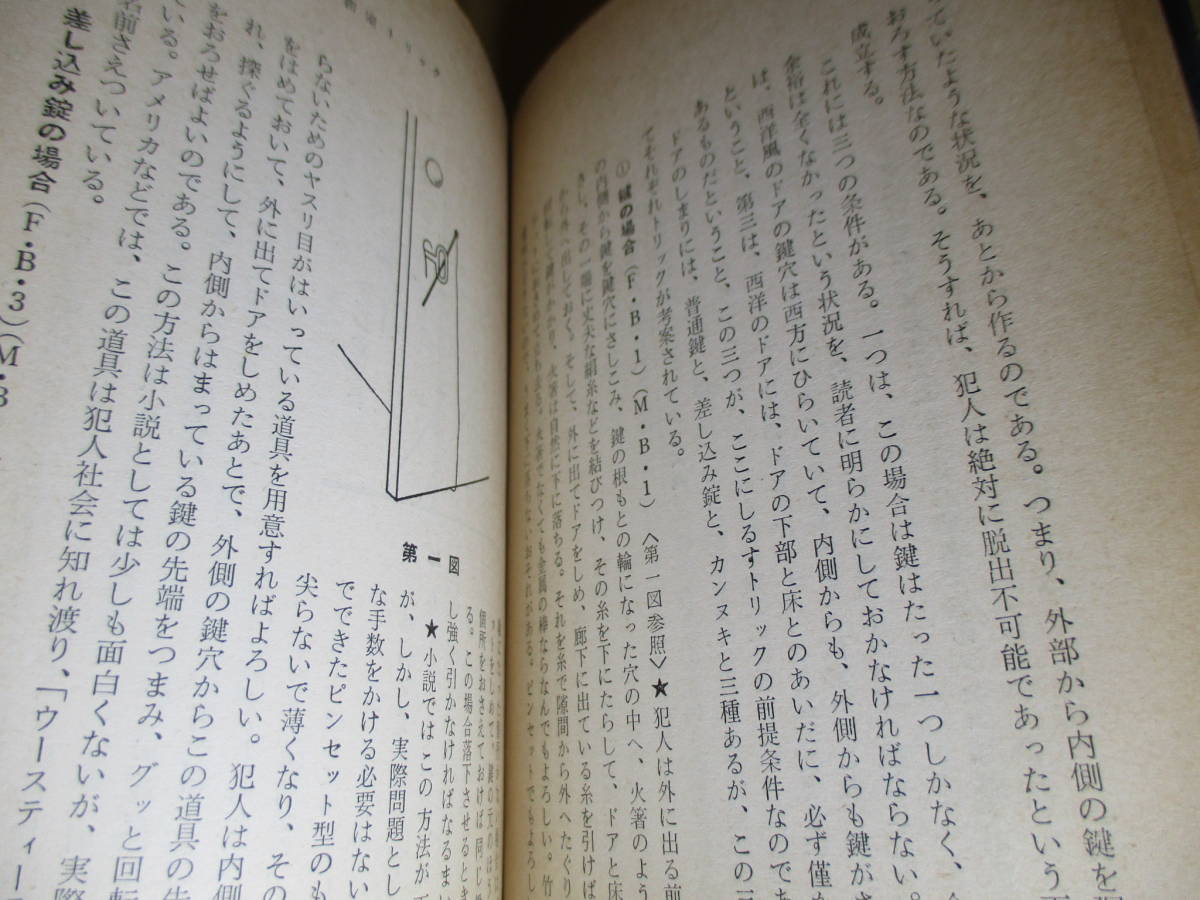 っていたような状況を、あとから作るのである。つまり、外部から内側の鍵を
おろす方法なのである。そうすれば、犯人は絶対に脱出不可能であったという
成立する。
これには三つの条件がある。一つは、この場合は鍵はたった一つしかなく、
合鍵は全くなかったという状況を、読者に明らかにしておかなければならない。
は、西洋風のドアの鍵穴は両方にひらいていて、内側からも、外側からも鍵が
ということ、第三は、西洋のドアには、ドアの下部と床とのあいだに、必ず僅か
あるものだということ、この三つが、ここにしるすトリックの前提条件なのであ
ドアのしまりには、普通鍵と、差し込み錠と、カンヌキと三種あるが、この三
てそれぞれトリックが考案されている。
① 鍵の場合(F・B・1)(M・B・1)〈第一図参照〉★犯人は外に出る前
の内側から鍵を鍵穴にさしこみ、鍵の根もとの輪になった穴の中へ、火箸のよう
さし、その一端に丈夫な絹糸などを結びつけ、その糸を下にたらして、ドアと床
から外へ出しておく。そして、外に出てドアをしめ、廊下に出ている糸を引けば
回転して鍵がかかり、火箸は自然に下に落ちる。それを糸で隙間から外へたぐり
火箸でなくても金属の棒ならなんでもよろしい。竹
ピンセットでもよろし
密室トリック
第一図
個所をおさえておけば同じ
る。この場合落下させるとき
し強く引かなければなるまい
★小説ではこの方法が
が、しかし、実際問題とし
な手数をかける必要はない
でできたピンセット型のも
尖らないで薄くなり、その
らないためのヤスリ目がはいっている道具を用意すればよろしい。犯人は内側
をはめておいて、外に出てドアをしめたあとで、外側の鍵穴からこの道具の先
れ、探ぐるようにして、内側からはまっている鍵の先端をつまみ、グッと回転
をおろせばよいのである。この方法は小説としては少しも面白くないが、実際
ている。アメリカなどでは、この道具は犯人社会に知れ渡り、「ウースティー
名前さえついている。
差し込み錠の場合(F・B・3)(M・B